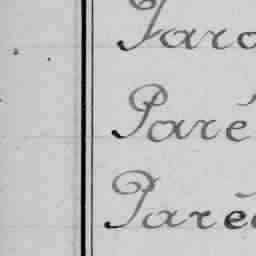 Paro
Paré
Paré